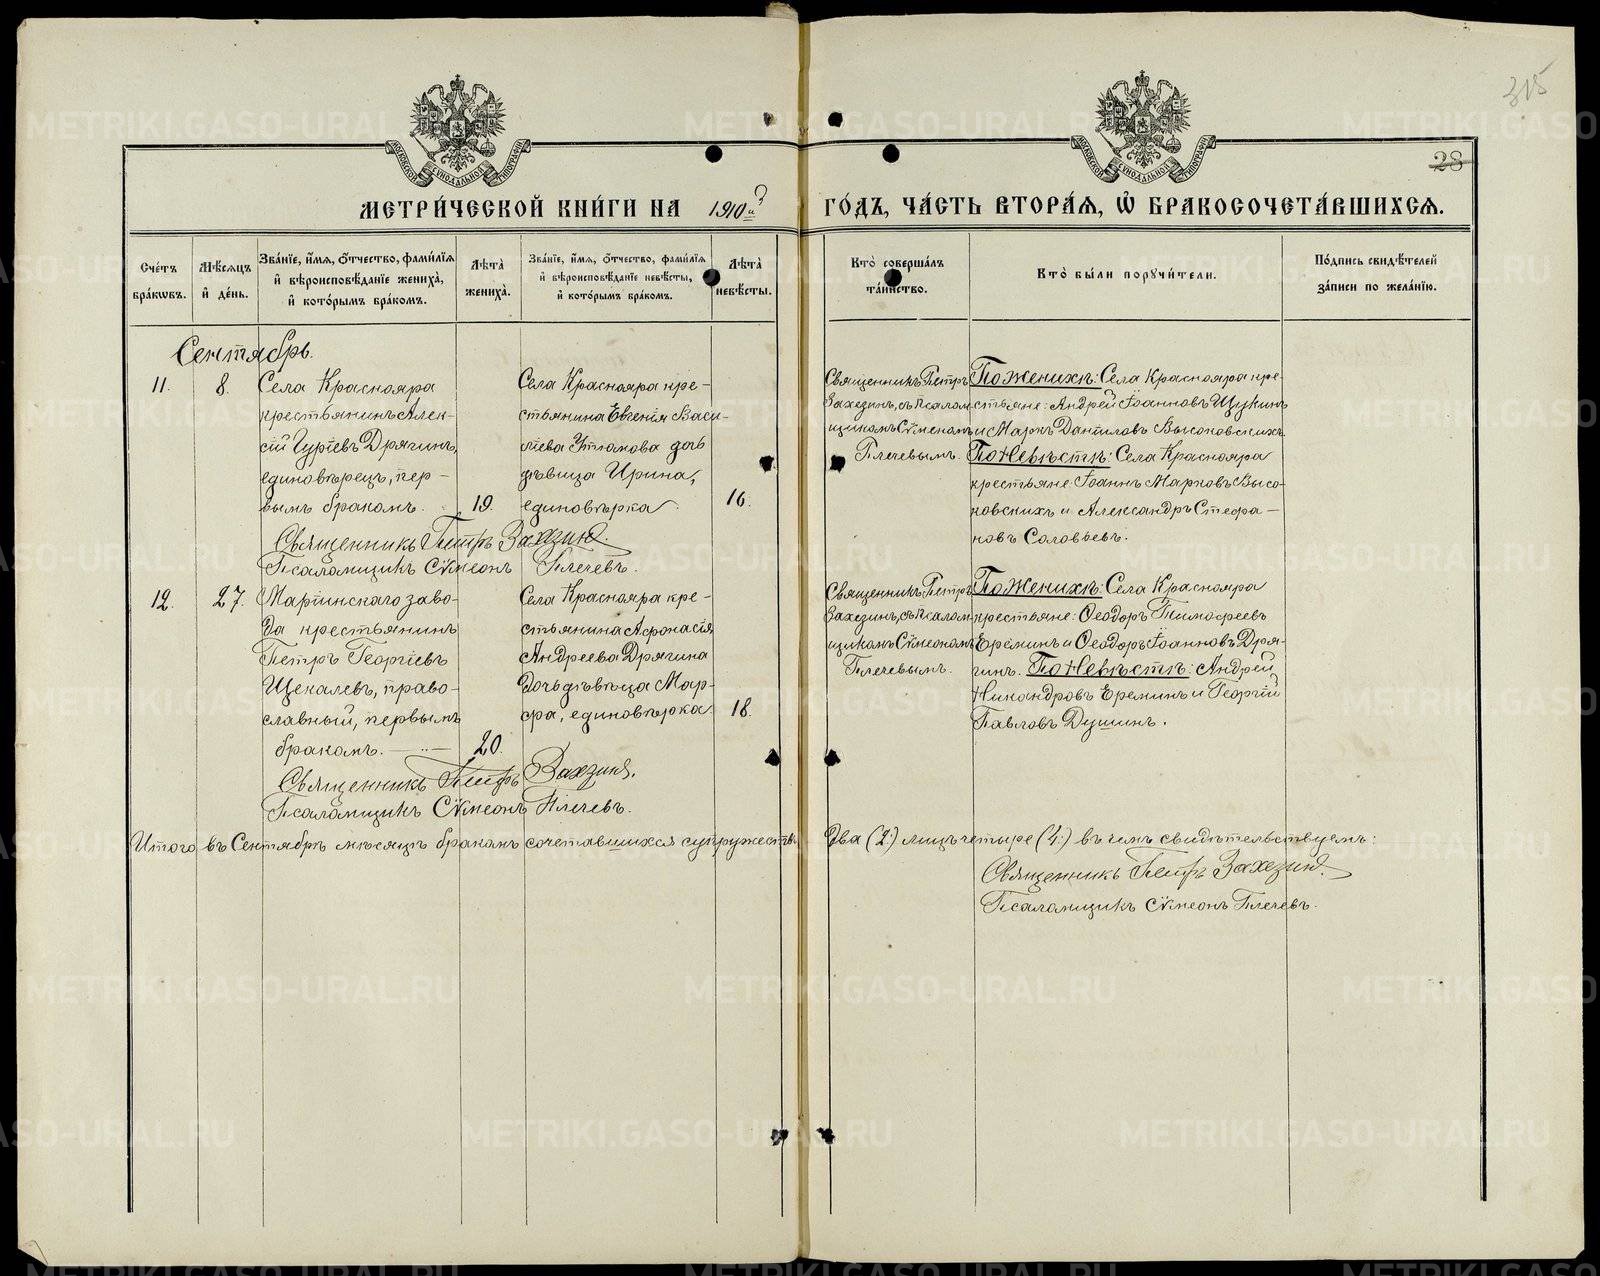 315
28
МОСКОВСКОЙ СУНОДАЛЬНОЙ ТИПОГРАФІИ
МОСКОВСКОЙ СУНОДАЛЬНОЙ ТИПОГРАФІИ
МЕТРИ́ЧЕСКОЙ КНИ́ГИ НА 1910й
ГО́ДЪ, ЧА́СТЬ ВТОРА́Я, Ѡ҆ БРАКОСОЧЕТА́ВШИХСЯ.
Сче́тъ бра́кѡвъ.
Мѣ́сяцъ и҆ де́нь.
Зва́нїе, и҆́мя, ѻ҆́тчество, фами́лїя и҆ вѣроисповѣ́данїе жениха̀, и҆ кото́рымъ бра́комъ.
Лѣта̀ жениха̀.
Зва́нїе, и҆́мя, ѻ҆́тчество, фами́лїя и҆ вѣроисповѣ́данїе невѣ́сты, и҆ кото́рымъ бра́комъ.
Лѣта̀ невѣ́сты.
Кто̀ соверша́лъ та́инство.
Кто̀ бы́ли порꙋчи́тели.
По́дпись свидѣ́телей за́писи по жела́нїю.
Сентябрь.
11.
8.
Села Краснояра
крестьянинъ Алек-
сій Гуріевъ Дрягинъ,
единовѣрецъ, пер-
вымъ бракомъ.
19.
Села Краснояра кре-
стьянина Евгенія Васи-
льева Утюмова дочь
дѣвица Ирина,
единовѣрка.
16.
Священникъ Петръ
Захезинъ, съ Псалом-
щикомъ Сѵмеономъ
Плечевымъ.
По Женихѣ: Села Краснояра кре-
стьяне: Андрей Іоанновъ Щукинъ
и Маркъ Даниловъ Высоковскихъ
По Невѣстѣ: Села Краснояра
крестьяне: Іоаннъ Марковъ Высо-
ковскихъ и Александръ Стефа-
новъ Соловьевъ.
Священникъ Петръ Захезинъ.
Псаломщикъ Сѵмеонъ Плечевъ.
12.
27.
Маріинскаго заво-
да крестьянинъ
Петръ Георгіевъ
Щекалевъ, право-
славный, первымъ
бракомъ.
20.
Села Краснояра кре-
стьянина Афонасія
Андреева Дрягина
дочь дѣвица Мар-
фа, единовѣрка.
18.
Священникъ Петръ
Захезинъ, съ Псалом-
щикомъ Сѵмеономъ
Плечевымъ.
По Женихѣ: Села Краснояра
крестьяне: Ѳеодоръ Тимофеевъ
Ереминъ и Ѳеодоръ Іоанновъ Дря-
гинъ. По Невѣстѣ: Андрей
Никандровъ Ереминъ и Георгій
Павловъ Душинъ.
Священникъ Петръ Захезинъ.
Псаломщикъ Сѵмеонъ Плечевъ.
Итого въ Сентябрѣ мѣсяцѣ бракомъ сочетавшихся супружествъ два (2) лицъ четыре (4) въ чемъ свидѣтельствуемъ:
Священникъ Петръ Захезинъ.
Псаломщикъ Сѵмеонъ Плечевъ.
METRIKI.GASO-URAL.RU